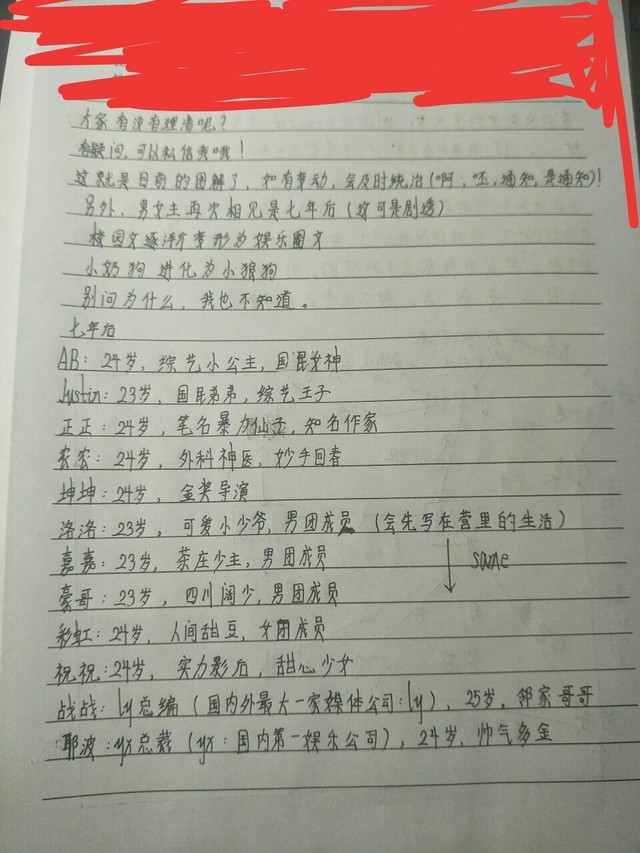 大家有没有理清呢?
有疑问,可以私信我哦!
这就是目前的图解了,如有变动,会及时统治(啊,呸,通知,是通知)!
另外,男女主再次相见是七年后(这可是剧透)
校园文逐渐变形为娱乐圈文
小奶狗进化为小狼狗
别问为什么,我也不知道。
七年后
AB:24岁,综艺小公主,国民女神
Justin:23岁,国民弟弟,综艺王子
正正:24岁,笔名暴力仙子,知名作家
农农:24岁,外科神医,妙手回春
坤坤:24岁,金奖导演
洛洛:23岁,可爱小少爷,男团成员(会先写在营里的生活)
嘉嘉:23岁,茶庄少主,男团成员 same
豪哥:23岁,四川阔少,男团成员
彩虹:24岁,人间甜豆,女团成员
祝祝:24岁,实力影后,甜心少女
战战:ly总编(国内外最大一家媒体公司:ly),25岁,邻家哥哥
耶波:yx总裁(yx:国内第一娱乐公司),24岁,帅气多金